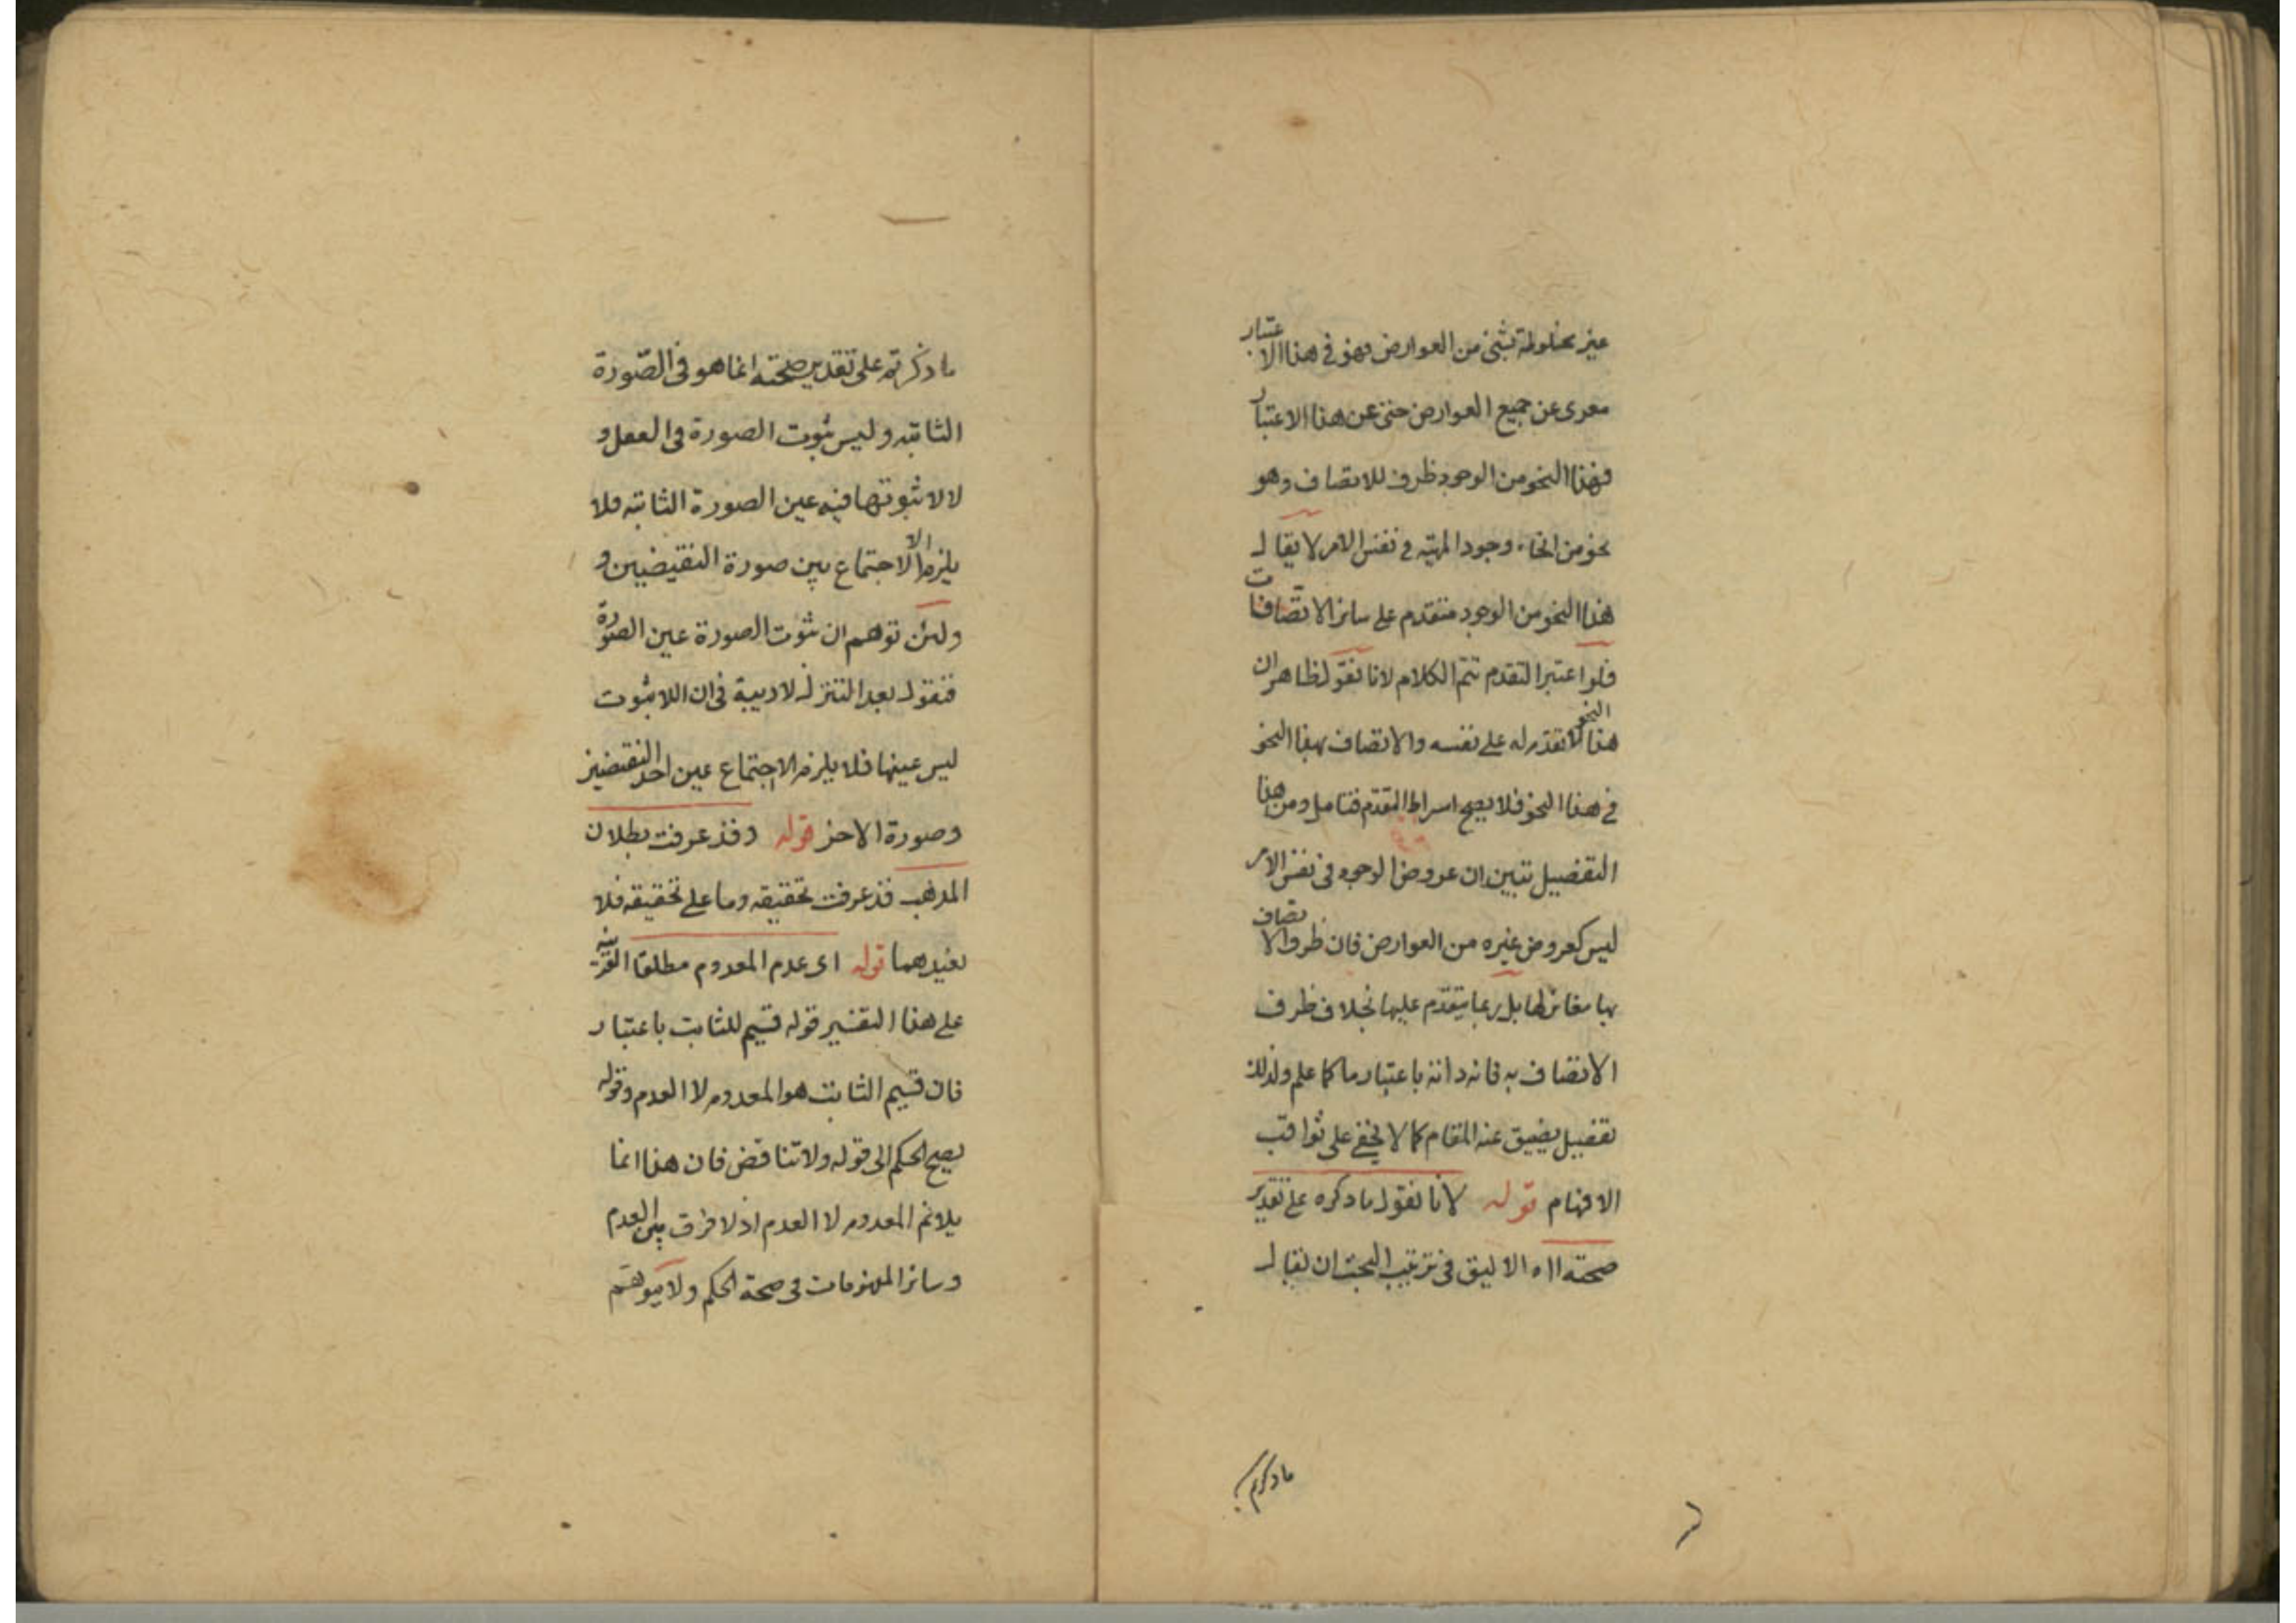 غير مخلوطة بشئ من العوارض فهو في هذا الاعتبار
معرى عن جميع العوارض حتى عن هذا الاعتبار
فهذا النحو من الوجود ظرف للاتصاف وهو
نحو من انحاء وجود المهية في نفس الامر لا يقال
هذا النحو من الوجود متقدم على سائر الاتصافات
فلو اعتبر التقدم تتم الكلام لانا نقول ظاهر ان
هذا النحو لا تقدم له على نفسه والاتصاف بهذا النحو
في هذا النحو فلا يصح اسراط التقدم فتامل ومن هنا
التفضيل تبين ان عروض الوجود في نفس الامر
ليس كعروض غيره من العوارض فان ظرف الاتصاف
بها مغائر لها بل ربما يتقدم عليها بخلاف ظرف
الاتصاف به فانه ذاته باعتبار ما كما علم ولذلك
تفصيل يضيق عنه المقام كما لا يخفى على ثواقب
الافهام قوله لانا نقول ما ذكره على تقدير
صحته ااه الاليق في ترتيب البحث ان يقال
ما ذكرتم
ما ذكرتم على تقدير صحته انما هو في الصّورة
الثابته وليس ثبوت الصورة في العقل و
لا لا ثبوتها فيه عين الصورة الثابته فلا
يلزم الا الاجتماع بين صورة النقيضين و
ولئن توهم ان ثبوت الصورة عين الصورة
فنقول بعد التنزل لا ريبة في ان اللاثبوت
ليس عينها فلا يلزم الاجتماع عين احد النقيضين
وصورة الاخر قوله وقد عرفت بطلان
المذهب قد عرفت تحقيقه وما على تحقيقه فلا
نعيدهما قوله اى عدم المعدوم مطلقا القرينه
على هذا التفسير قوله قسيم للثابت باعتبار
فان قسيم الثابت هو المعدوم لا العدم وقوله
يصح الحكم الى قوله ولا تناقض فان هذا انما
يلائم المعدوم لا العدم اذ لا فرق بين العدم
وسائر المفهومات في صحة الحكم ولا يتوهم